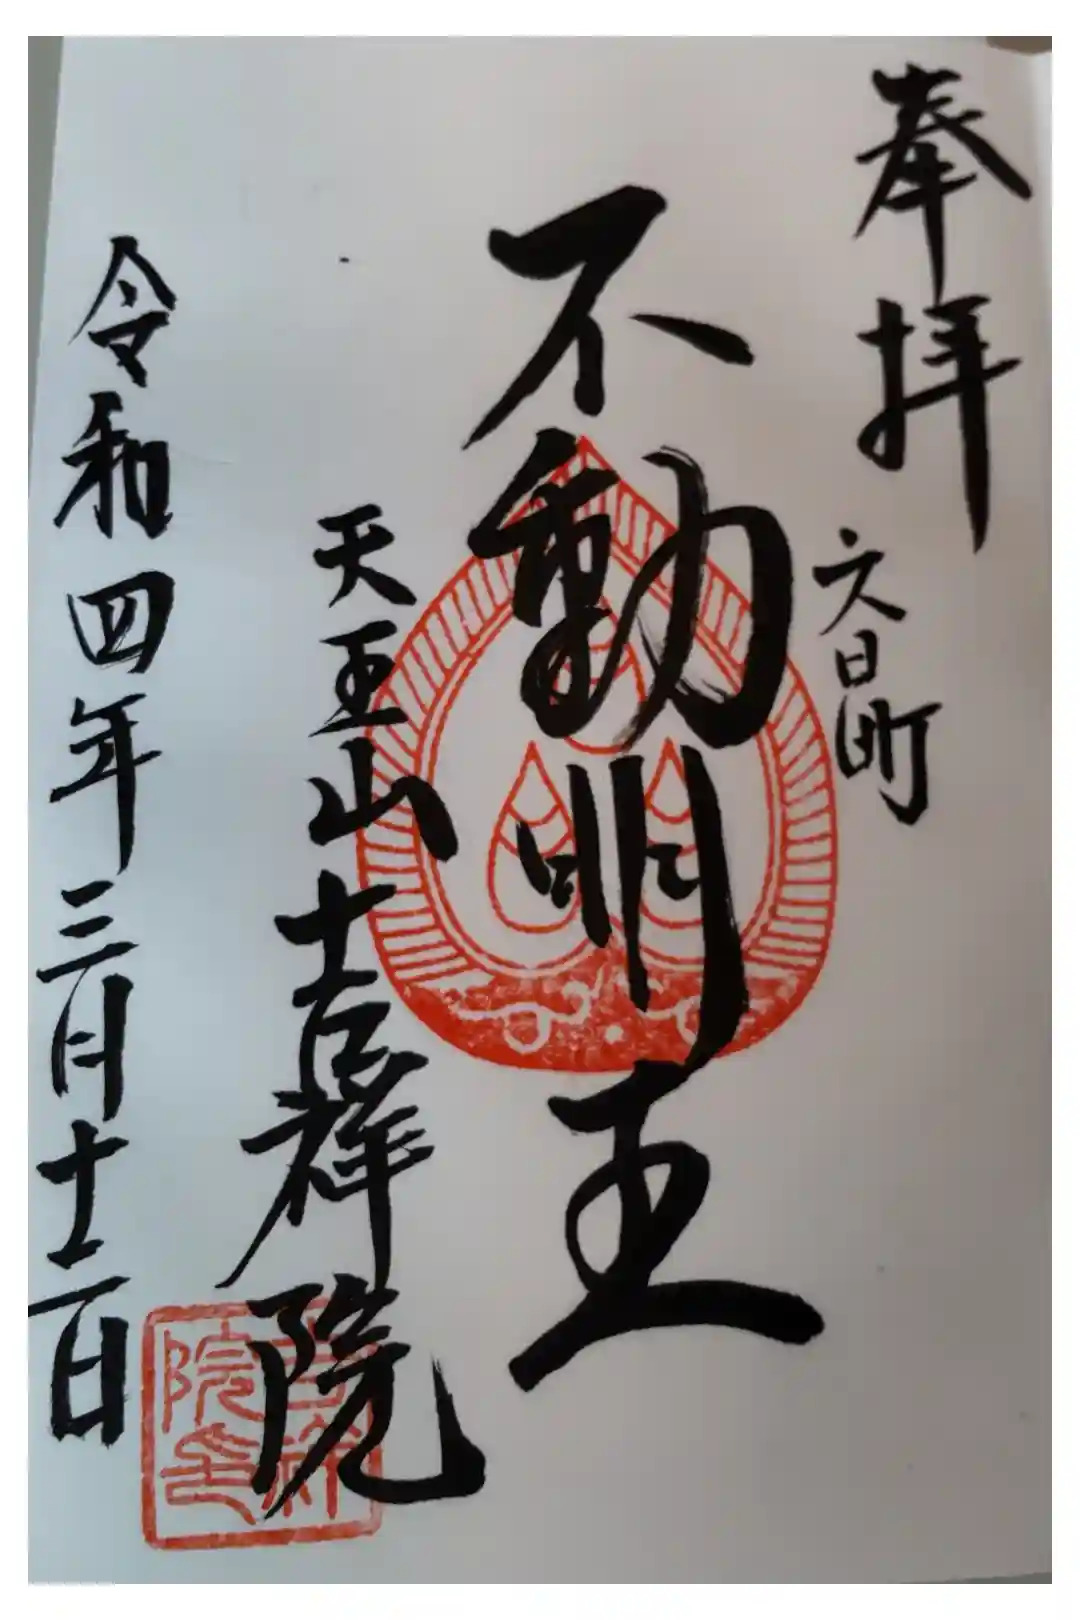 奉拝
六日町
不動明王
天王山吉祥院
令和四年三月十二日
吉祥
院印